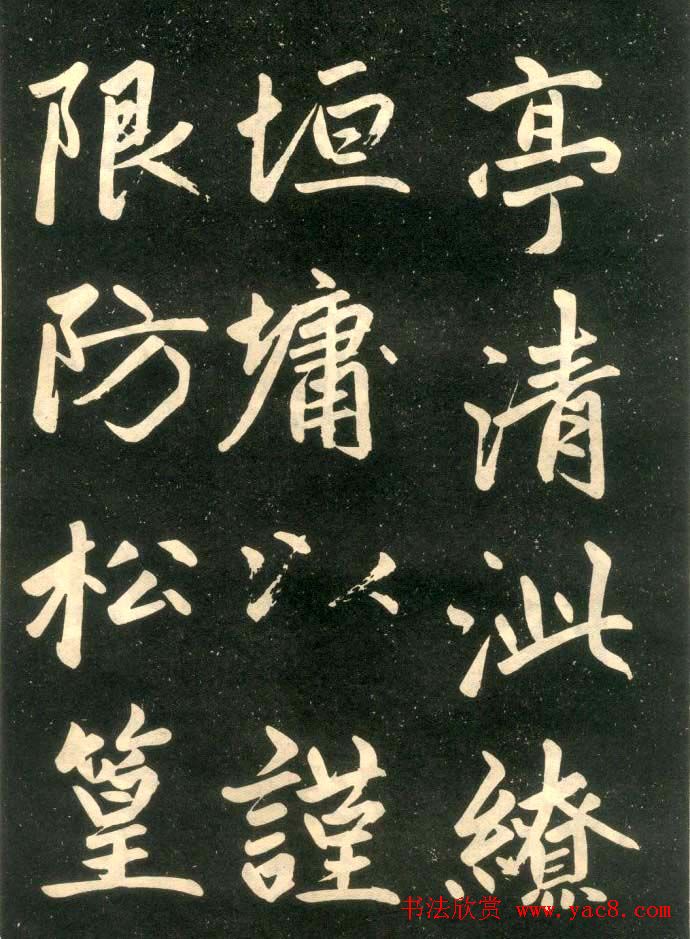 亭清泚繚
垣墉以謹
限防松篁
书法欣赏 www.yac8.com